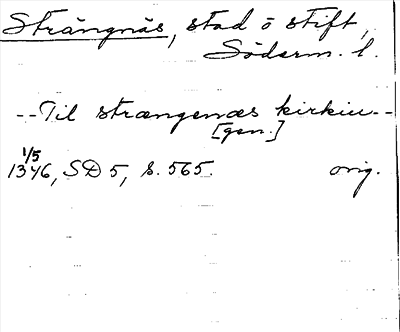 Strängnäs, stad o stift,
Söderm. l.
--Til strængenæs kirkiu--
[gen.]
1/5
1346, SD 5, s. 565. orig.